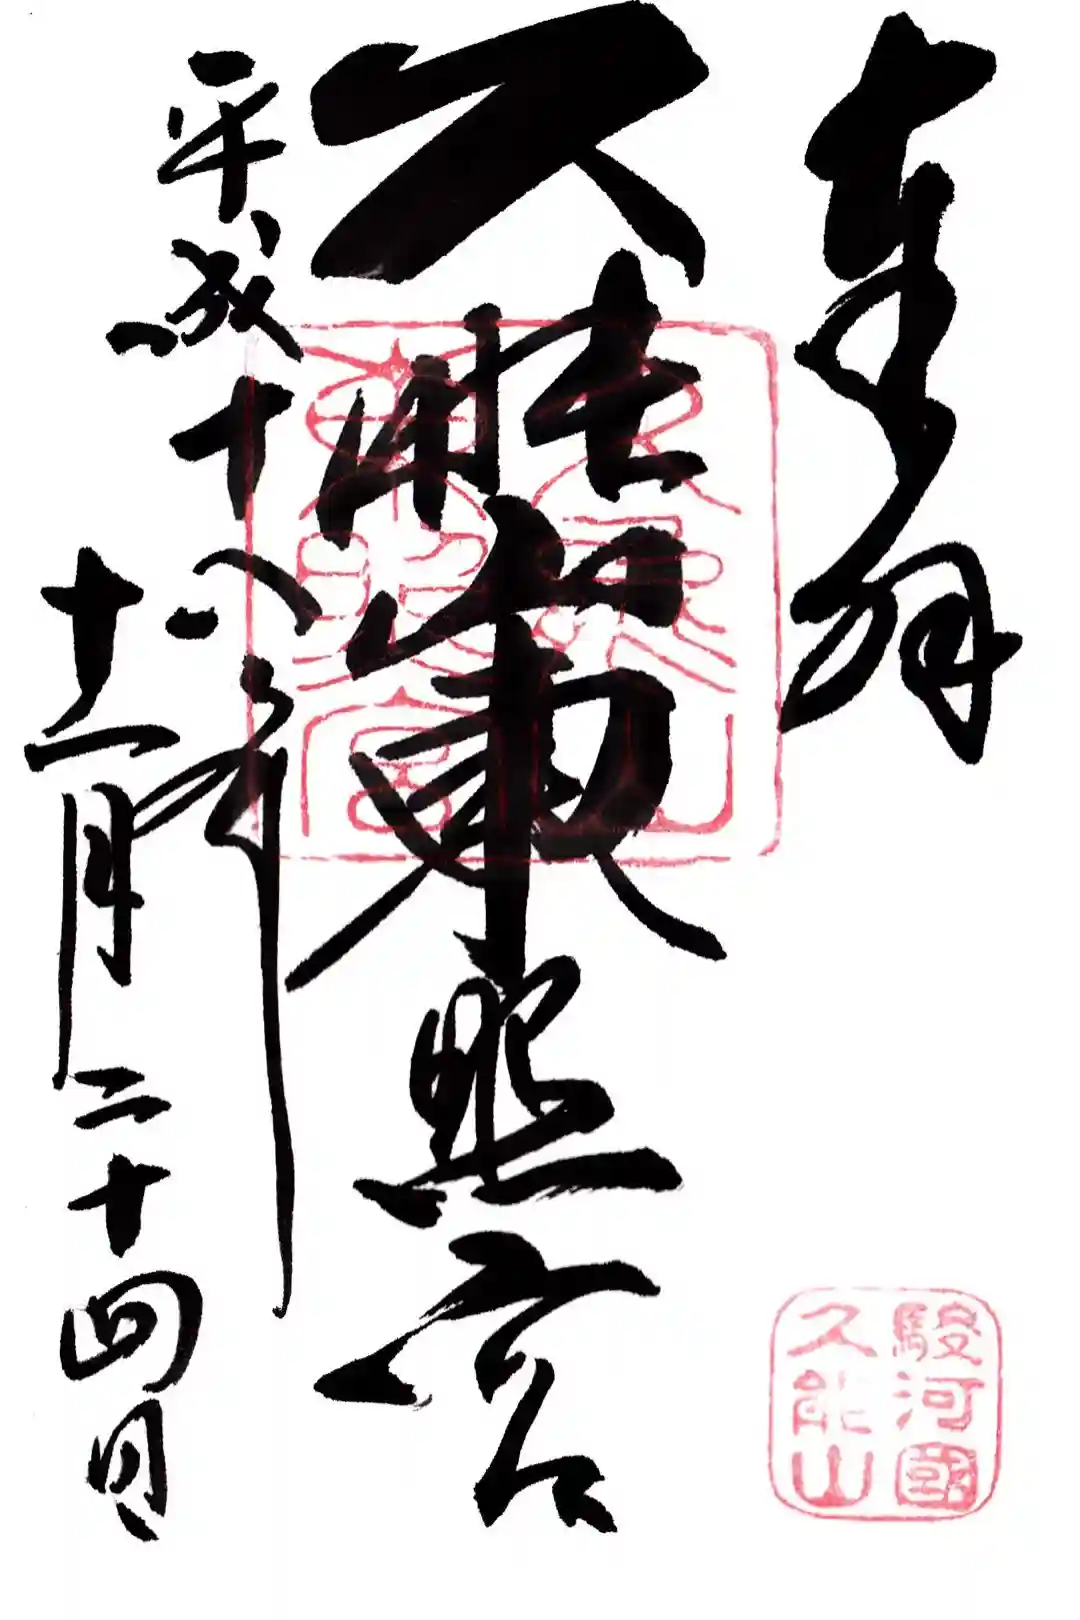 奉拝
駿河國
久能山
久能山東照宮
久能山
東照宮
平成十八年
十二月二十四日